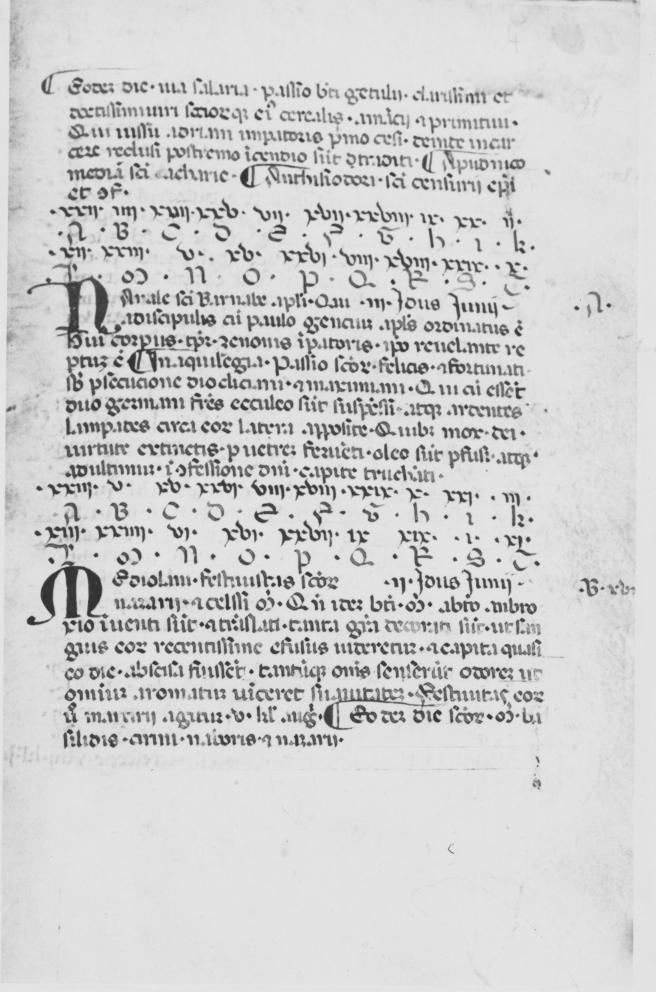 ¶ Eodeȝ die · uia salaria · passio bti getulii · clarissimi et
doctissimi uiri sctoꝝ qȝ eiꝰ cerealis · amacii ⁊ primitiui ·
Qui iussu adriani imꝑatoris pͥmo cesi · deinde in car
cere reclusi postremo īcendio sūt ꝺtraditi · ¶ Apud nico
mediā sci acharie · ¶ Anthisiodori · sci censurii epī
et ↄf ·
· xxii · iiii · xvii · xxv · vii · xvii · xxviii · ix · xx · ii ·
· A · B · C · D · E · F · G · h · i · k ·
· xii · xxiii · v · xv · xxvi · viii · xviii · xxix · x ·
· l · M · N · O · P · Q · R · S · T ·
Natale sci Barnabe apli · Qui · iii · Idus Iunii ·
a discipulis cū paulo gentiū apls ordinatus ē
huiꝰ corpus · tpr · zenonis īpatoris · ipo reuelante re
ptuȝ ē ¶ In aquilegia · Passio sctoꝝ · felicis · ⁊ fortunati ·
sb ꝑsecucione dioclitiani · ⁊ maximiani · Qui cū esset
duo germani frēs ecculeo sūt suspēsi · atqȝ ardentes
lampades circa eoꝝ latera apposite · Quibȝ mox · dei ·
uirtute extinctis · p uentreȝ feruēti · oleo sūt ꝑfusi · atqȝ ·
ad ultimuȝ · ī ↄfessione dnī · capite trūchati ·
· xxiii · v · xv · xxvi · viii · xviii · xxix · x · xxi · iii ·
· A · B · C · D · E · F · G · h · i · k ·
· xiii · xxiiii · vi · xvi · xxvii · ix · xix · i · xi ·
· l · M · N · O · P · Q · R · S · T ·
Mediolani · festiuitas sctoꝝ · ii · Idus Iunii ·
nazarii · ⁊ celsi M · Qui iteȝ bti · M · abto ambro
xio īuenti sūt · ⁊ trāslati · tanta grā decorati sūt · ut san
guis eoꝝ recentissime efusus uideretur · ⁊ capita quasi
eo die · abscisa fuisset · tantūqȝ om̄s senserūt odoreȝ ut
omniuȝ aromatuȝ uīceret suauitateȝ · Festiuitas eoꝝ
ū nazarii agitur · v · kl aug · ¶ Eo deȝ die sctoꝝ · M · ba
silidis · cirini · naboris · ⁊ nazarii ·
· A ·